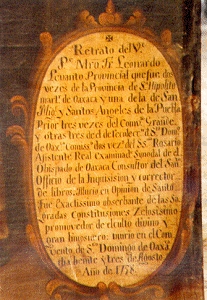 Retrato del V.e
P.e Mro Fr Leonardo
Levanto Provincial que fue dos
veces de la Provincia de S. Hipolito
mart.r de Oaxaca y una de la de San
Mig.l y Santos Angeles de la Puebla
Prior tres veces del Comv.to Grande
y otras tres del de
de Oax.ca Comiss.o dos vec.s del SS.mo Rosario
Asistente Real Examinad.r Synodal de el
Obispado de Oaxaca Consultor del San.to
Officio de la Inquisicion y corrector
de libros. Murio en Opinion de Santo
fue Exactissimo observante de las Sa
gradas Constitusiones Zelosisimo
promovedor de el culto divino y
gran limosnero: murio en el Com
vento de S.to Domingo de Oaxa
dia beinte y tres de Agosto.
Año de 1778.